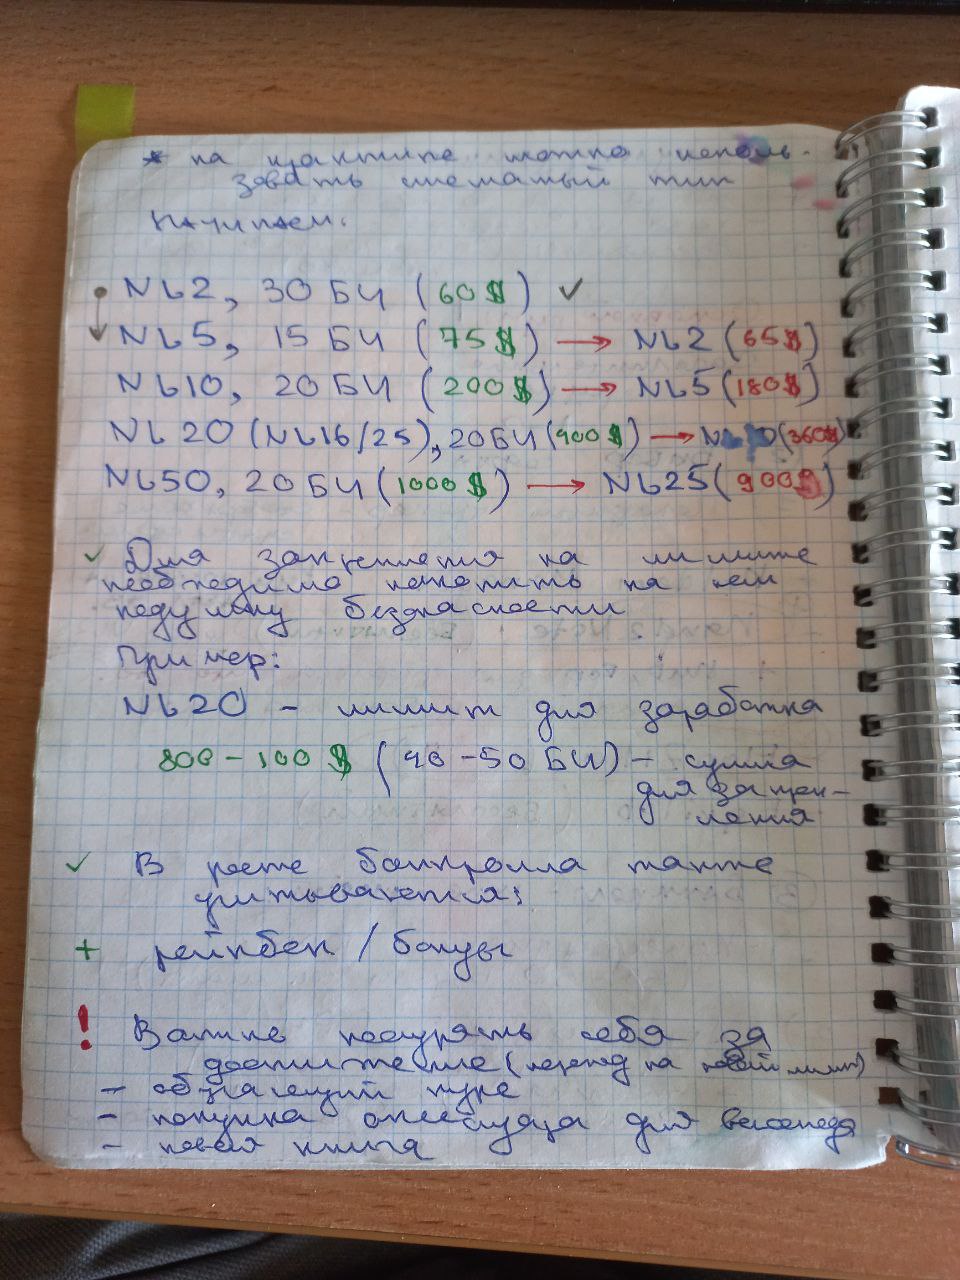 * на практике можно исполь-
зовать смешатый тип
Начинаем:
NL2, 30 БИ (60$) ✓
NL5, 15 БИ (75$) → NL2 (65$)
NL10, 20 БИ (200$) → NL5 (180$)
NL20 (NL16/25), 20 БИ (400$) → NL10 (360$)
NL50, 20 БИ (1000$) → NL25 (900$)
✓ Для закрепления на лимите
необходимо накопить на нём
подушку безопасности
Пример:
NL20 – лимит для заработка
800 – 100$ (40 – 50 БИ) – сумма
для закреп-
ления
✓ В росте банкролла также
учитывается:
+ рейкбек / бонусы
! Важно поощрять себя за
достижение (переход на новый лимит)
– обучающий курс
– покупка аксессуара для велосипеда
– новая книга